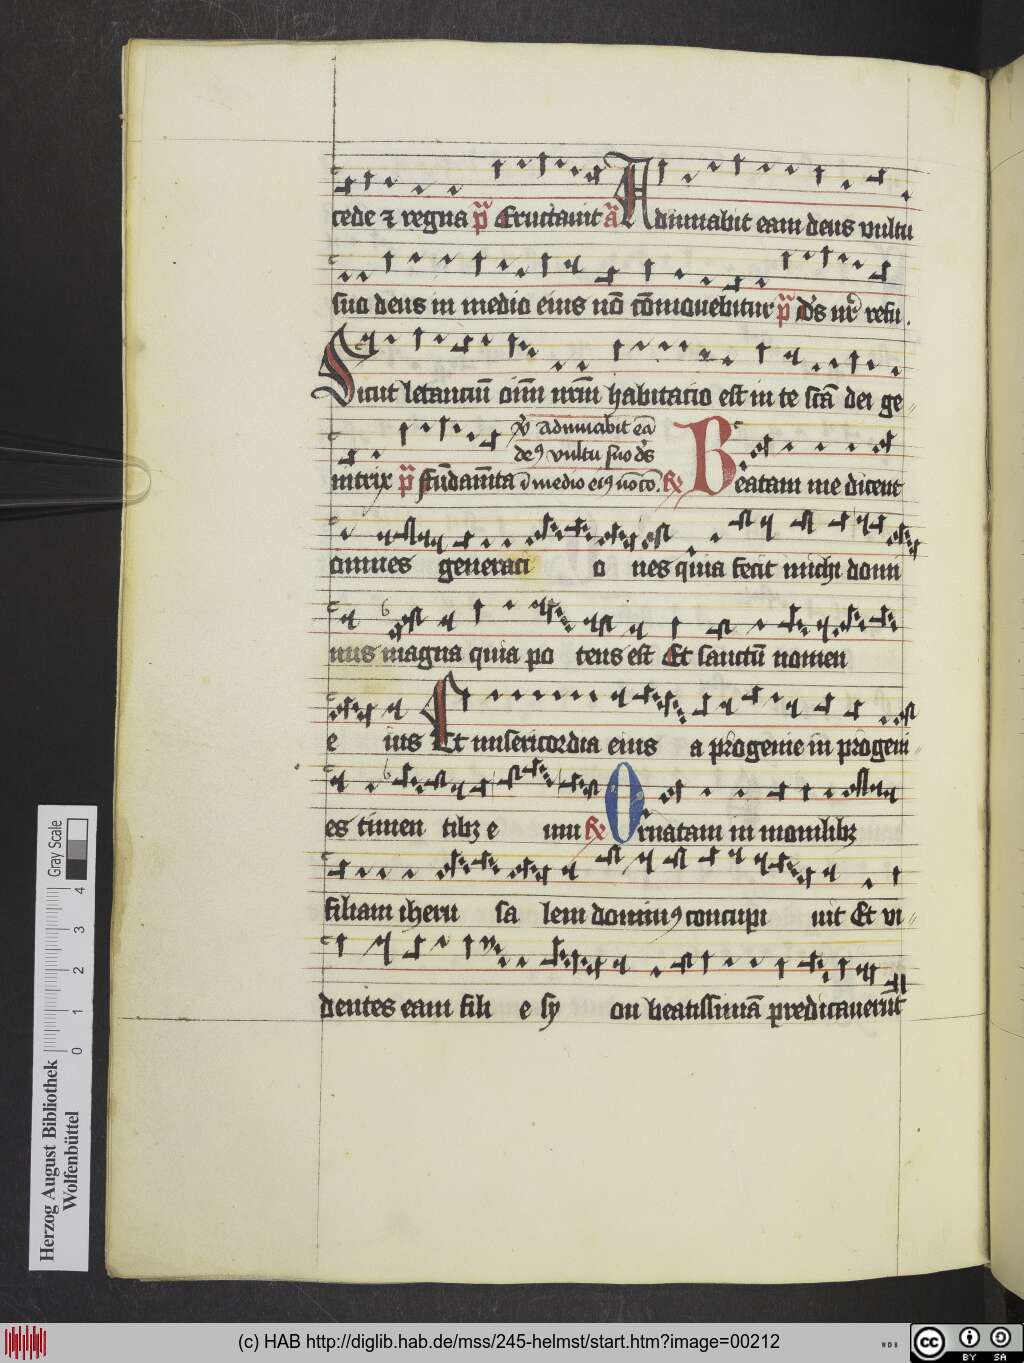 cede ⁊ regna p̄s Eructauit a͞ Adiuuabit eam deus vultu
suo deus in medio eius nō cōmouebitur p̄s Ds nr̄ refu .
Sicut letanciū oīm nr̄m habitacio est in te scā dei ge
nitrix p̄s fūdam̄ta
Adiuuabit eā
de9 vultu suo ds
ī medio ei9 nō co.
Beatam me dicent
omnes generaci o nes quia fecit michi domi
nus magna quia po tens est Et sanctū nomen
e ius Et misericordia eius a progenie in progeni
es timen tibz e um Ornatam in monilibz
filiam iheru sa lem domin9 concupi uit Et vi
dentes eam fili e sy on beatissimā predicauerūt
Gray Scale
4
3
2
1
0
Herzog August Bibliothek
Wolfenbüttel
(c) HAB http://diglib.hab.de/mss/245-helmst/start.htm?image=00212
WDB
cc BY SA